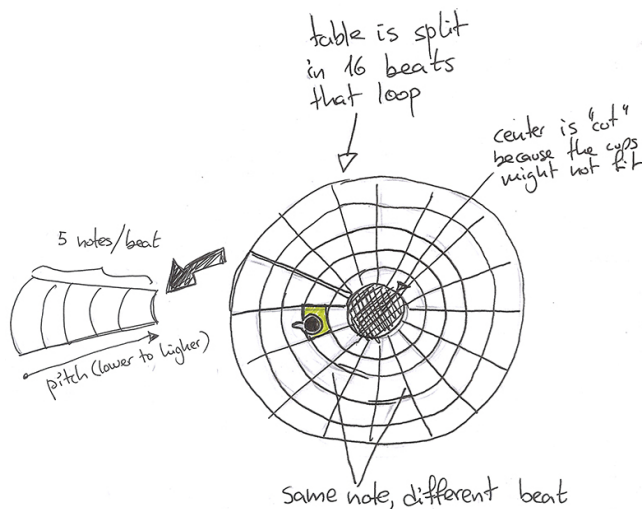 table is split
in 16 beats
that loop
center is "cut"
because the cups
might not fit
5 notes/beat
pitch (lower to higher)
same note, different beat